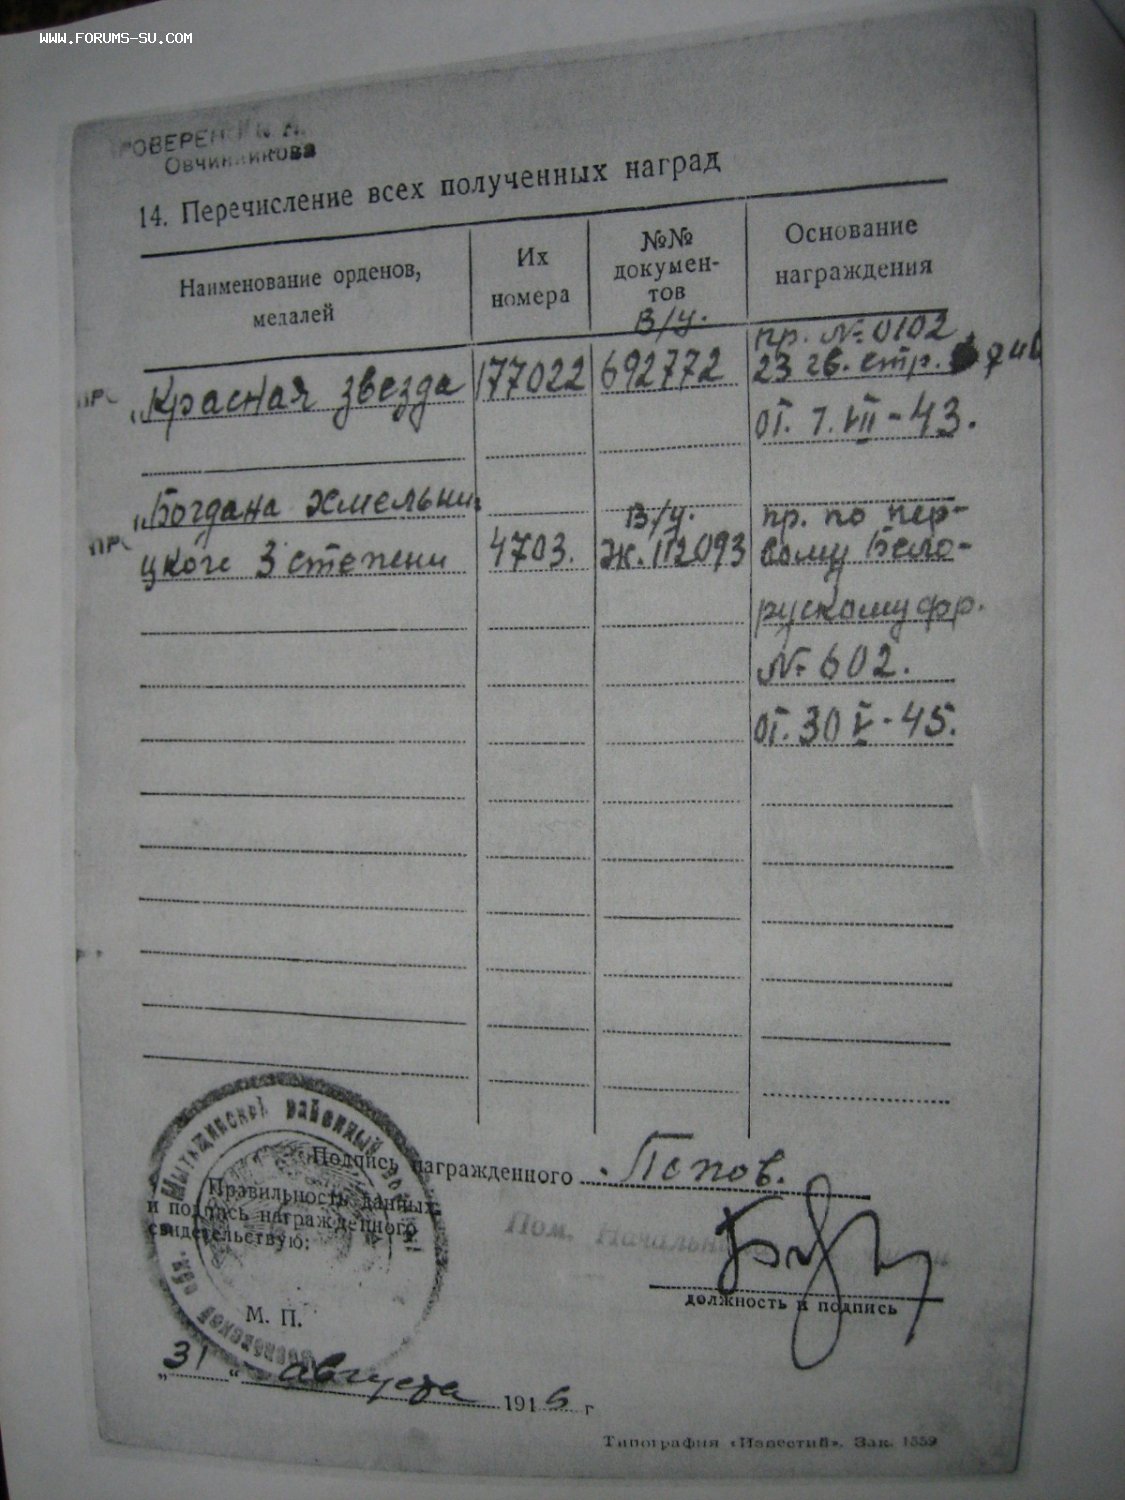 WWW.FORUMS-SU.COM
Овчинникова
14. Перечисление всех полученных наград
Наименование орденов, медалей
Их номера
№№ документов
Основание награждения
В/у.
пр. № 0102
„Красная звезда
177022
692772
23 гв. стр.
от. 7. VII - 43.
„Богдана Хмельни-
В/у.
пр. по пер-
цкого 3 степени
4703.
Ж. 112093
вому Бело-
рускому фр.
№ 602.
от. 30 V - 45.
Подпись награжденного Попов.
Правильность данных
и подпись награжденного
свидетельствую:
Мытищинский районный
Московской обл.
Пом. Начальника
должность и подпись
М. П.
„31“ августа 1945 г
Типография «Известий». Зак. 1559